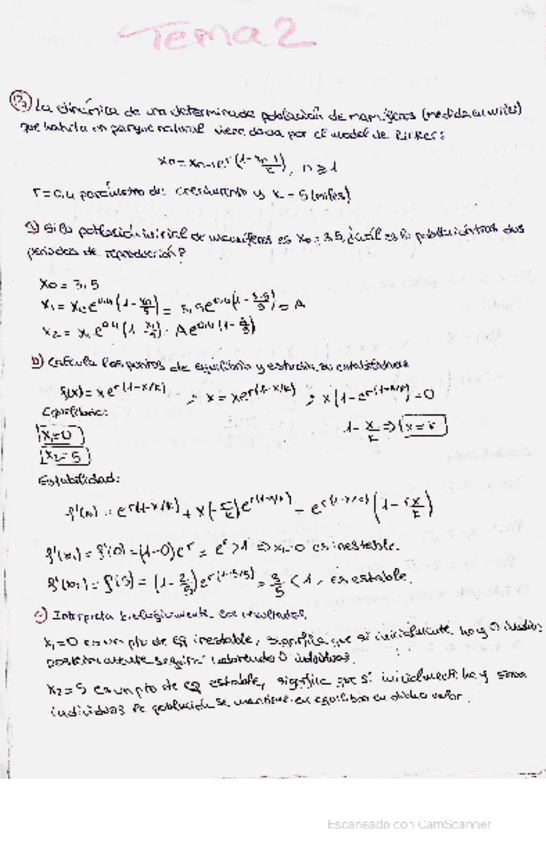 Tema 2
P3 La dinámica de una determinada población de mamíferos (medida en miles)
que habita un parque natural viene dada por el model de Ricker:
xn = xn-1 e^r(1 - xn-1/K), n ≥ 1
r = 0,4 parámetro de crecimiento y K = 5 (miles)
a) Si la población inicial de mamíferos es x0 = 3,5 ¿cuál es la población tras dos
periodos de reproducción?
x0 = 3,5
x1 = x0 e^0,4(1 - x0/5) = 3,5 e^0,4(1 - 3,5/5) = A
x2 = x1 e^0,4(1 - x1/5) = A e^0,4(1 - A/5)
b) Calcula los puntos de equilibrio y estudia su estabilidad
f(x) = x e^r(1-x/K) ; x = x e^r(1-x/K) ; x(1 - e^r(1-x/K)) = 0
Equilibrio:
x1 = 0
1 - x/K => x = K
x2 = 5
Estabilidad:
f'(x) = e^r(1-x/K) + x(-r/K) e^r(1-x/K) = e^r(1-x/K) (1 - r x/K)
f'(x1) = f'(0) = (1-0) e^r = e^r > 1 => x1 = 0 es inestable.
f'(x2) = f'(5) = (1 - 2/5) e^r(1-5/5) = 3/5 < 1, es estable.
c) Interpreta biológicamente los resultados.
x1 = 0 es un pto de eq inestable, significa que si inicialmente hay 0 indivs
posteriormente seguirá habiendo 0 individuos.
x2 = 5 es un pto de eq estable, significa que si inicialmente hay 5000
individuos la población se mantiene en equilibrio en dicho valor.
Escaneado con CamScanner